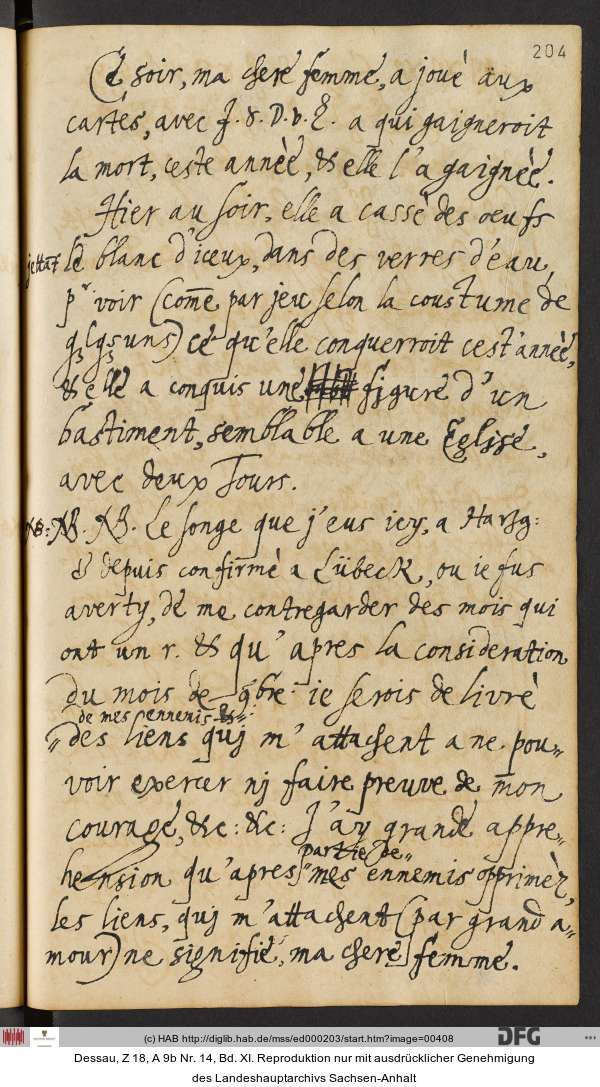 204
Ce soir, ma chere femme, a jouè aux
cartes, avec J. 8. D. v. E. a qui gaigneroit
la mort, ceste année, & elle l'a gaignèe.
Hier au soir, elle a cassè des oeufs
jettant le blanc d'iceux, dans des verres d'eau,
pr voir (come par jeu selon la coustume de
qlqsuns) ce qu'elle conquerroit cest'annèe,
& elle a conquis une figure d'un
bastiment, semblable a une Eglise,
avec deux Tours.
NB: NB. NB. Le songe que j'eus icy, a Hartzg:
& depuis confirmè a Lübeck, ou ie fus
averty, de me contregarder des mois qui
ont un r. & qu'apres la consideration
du mois de 9bre. ie serois delivrè
de mes ennemis &
des liens quj m'attachent a ne pou-
voir exercer nj faire preuve de mon
courage, &c: &c: J'ay grande appre-
partie de
hension qu'apres mes ennemis opprimèz,
les liens, quj m'attachent (par grand a-
mour) ne signifie, ma chere femme.
(c) HAB http://diglib.hab.de/mss/ed000203/start.htm?image=00408
DFG
Dessau, Z 18, A 9b Nr. 14, Bd. XI. Reproduktion nur mit ausdrücklicher Genehmigung
des Landeshauptarchivs Sachsen-Anhalt